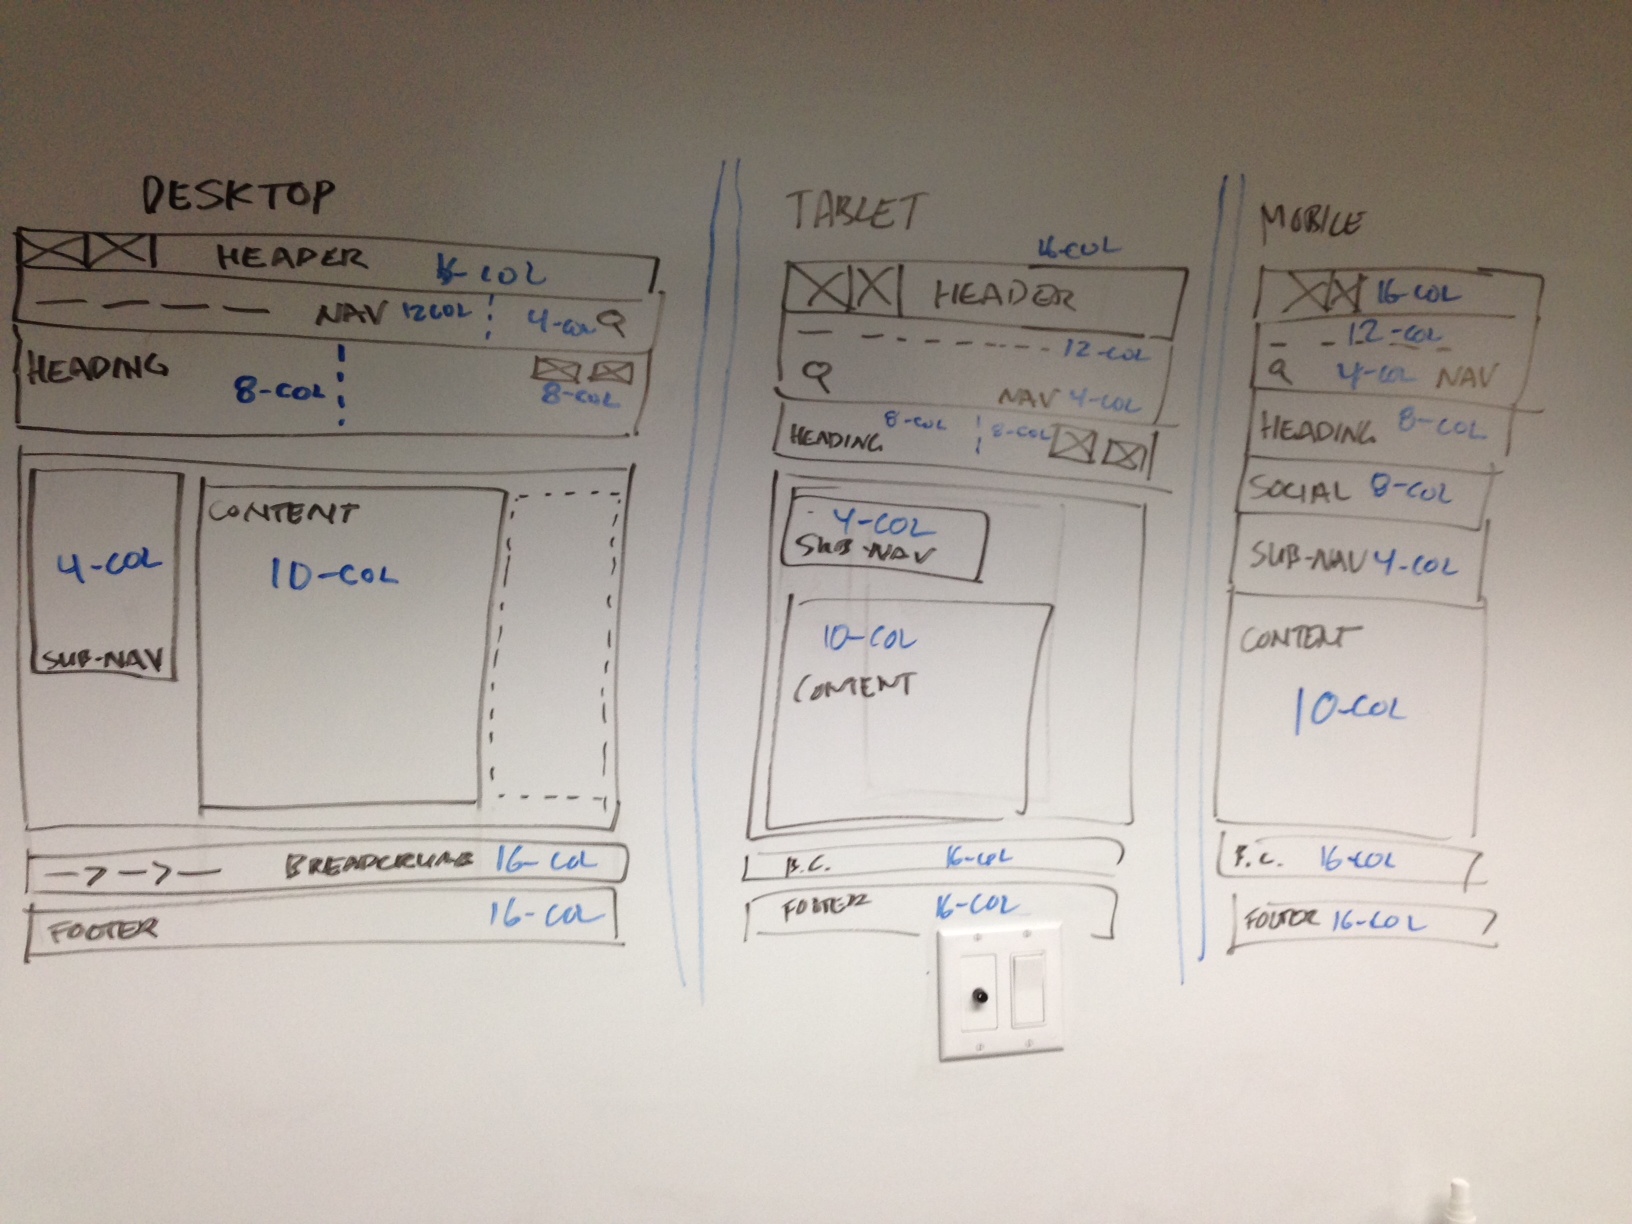 DESKTOP
HEADER 16-COL
NAV 12COL 4-COL
HEADING 8-COL 8-COL
CONTENT
4-COL 10-COL
SUB-NAV
BREADCRUMB 16-COL
FOOTER 16-COL
TABLET
16-COL
HEADER
12-COL
NAV 4-COL
HEADING 8-COL 8-COL
4-COL
SUB-NAV
10-COL
CONTENT
B.C. 16-COL
FOOTER 16-COL
MOBILE
16-COL
12-COL
4-COL NAV
HEADING 8-COL
SOCIAL 8-COL
SUB-NAV 4-COL
CONTENT
10-COL
B.C. 16-COL
FOOTER 16-COL